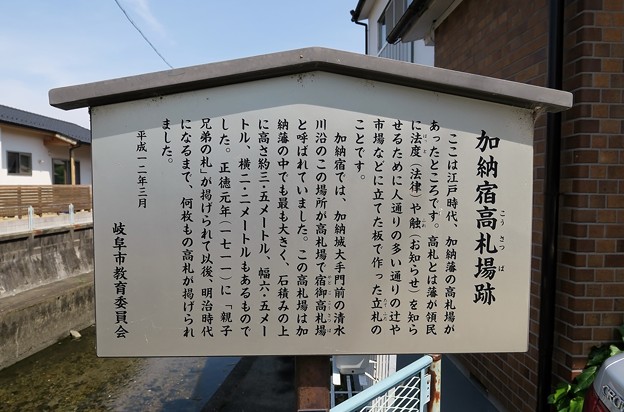 加納宿高札場跡
こうさつば
ここは江戸時代、加納藩の高札場が
あったところです。高札とは藩が領民
に法度(法律)や触(お知らせ)を知ら
せるために人通りの多い通りの辻や
市場などに立てた板で作った立札の
ことです。
加納宿では、加納城大手門前の清水
川沿のこの場所が高札場で宿御高札場
と呼ばれていました。この高札場は加
納藩の中でも最も大きく、石積みの上
に高さ約三・五メートル、幅六・五メー
トル、横二・二メートルもあるもので
した。正徳元年(一七一一)に「親子
兄弟の札」が掲げられて以後、明治時代
になるまで、何枚もの高札が掲げられ
ました。
平成一二年三月
岐阜市教育委員会